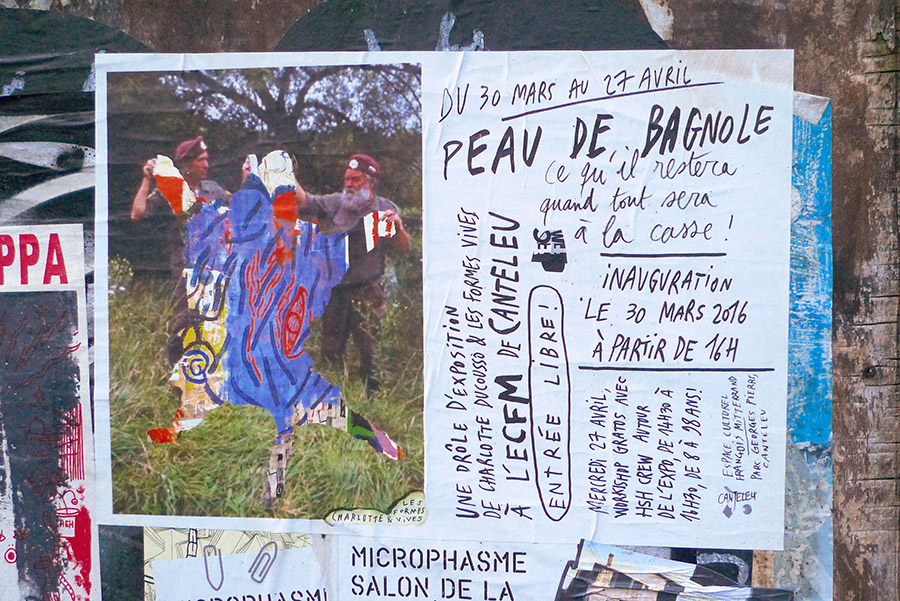 DU 30 MARS AU 27 AVRIL
PEAU DE BAGNOLE
ce qu'il restera
quand tout sera
à la casse !
INAUGURATION
LE 30 MARS 2016
À PARTIR DE 16H
UNE DRÔLE D'EXPOSITION
DE CHARLOTTE DUCOUSSO & LES FORMES VIVES
À L'ECFM DE CANTELEU
ENTRÉE LIBRE !
MERCREDI 27 AVRIL,
WORKSHOP GRATOS AVEC
HSH CREW AUTOUR
DE L'EXPO DE 14H30 À
16H30, DE 8 À 98 ANS !
ESPACE CULTUREL
FRANÇOIS MITTERRAND
PARC GEORGES PIERRE,
CANTELEU
CANTELEU
CHARLOTTE & LES FORMES VIVES
PPA
MICROPHASME
SALON DE LA
MICROPHASME